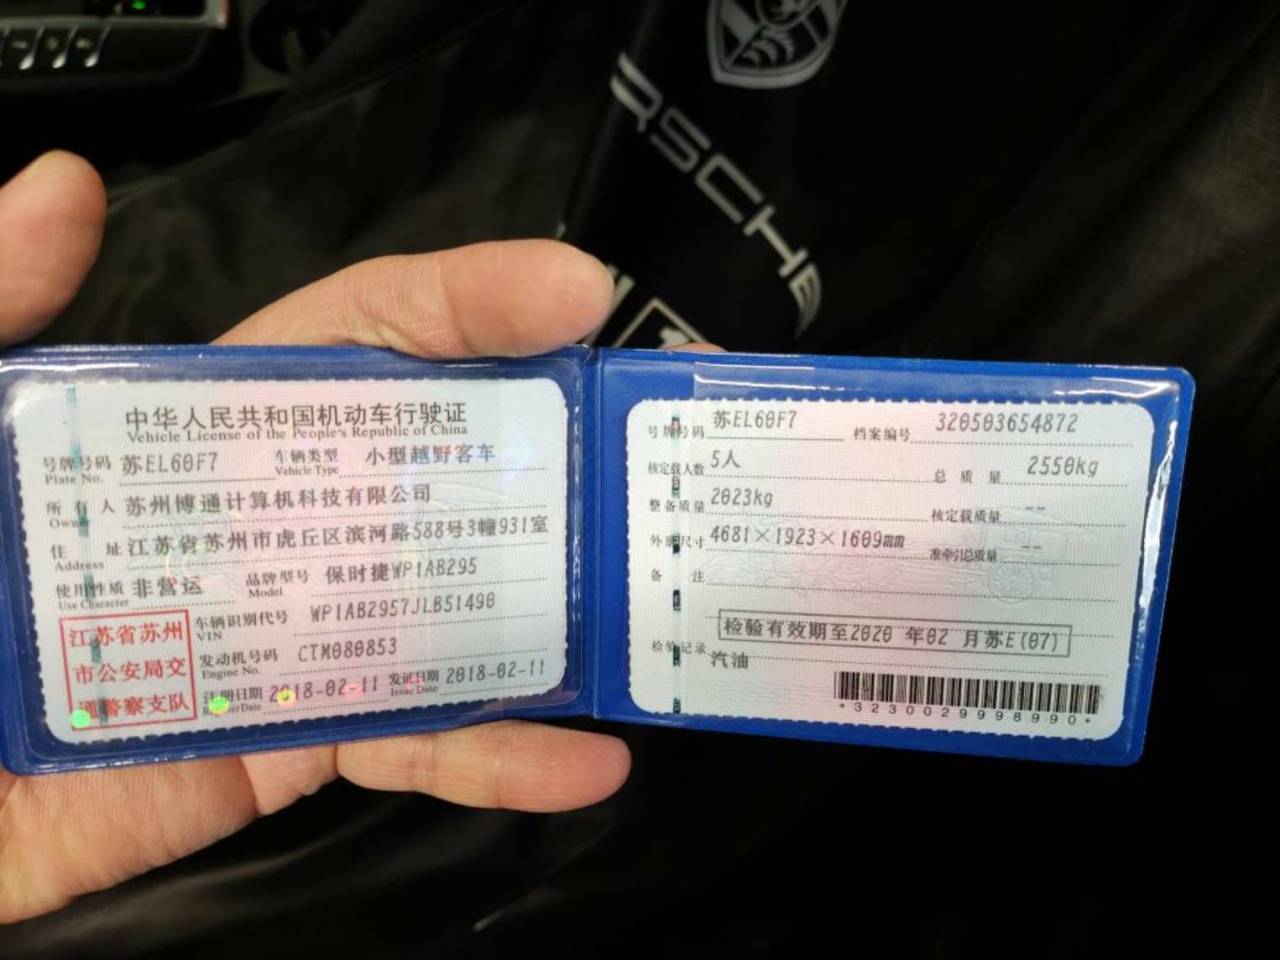 RSCHE
中华人民共和国机动车行驶证
Vehicle License of the People's Republic of China
号牌号码 苏EL60F7 车辆类型 小型越野客车
Plate No. Vehicle Type
所有人 苏州博通计算机科技有限公司
Owner
住址 江苏省苏州市虎丘区滨河路588号3幢931室
Address
使用性质 非营运 品牌型号 保时捷WP1AB295
Use Character Model
江苏省苏州
市公安局交
通警察支队
车辆识别代号 WP1AB2957JLB51490
VIN
发动机号码 CTM080853
Engine No.
注册日期 2018-02-11 发证日期 2018-02-11
Register Date Issue Date
号牌号码 苏EL60F7 档案编号 320503654872
核定载人数 5人 总质量 2550kg
整备质量 2023kg 核定载质量 --
外廓尺寸 4681×1923×1609mm 准牵引总质量 --
备注
检验有效期至2020 年02 月苏E(07)
检验记录
汽油
*3230029998990*